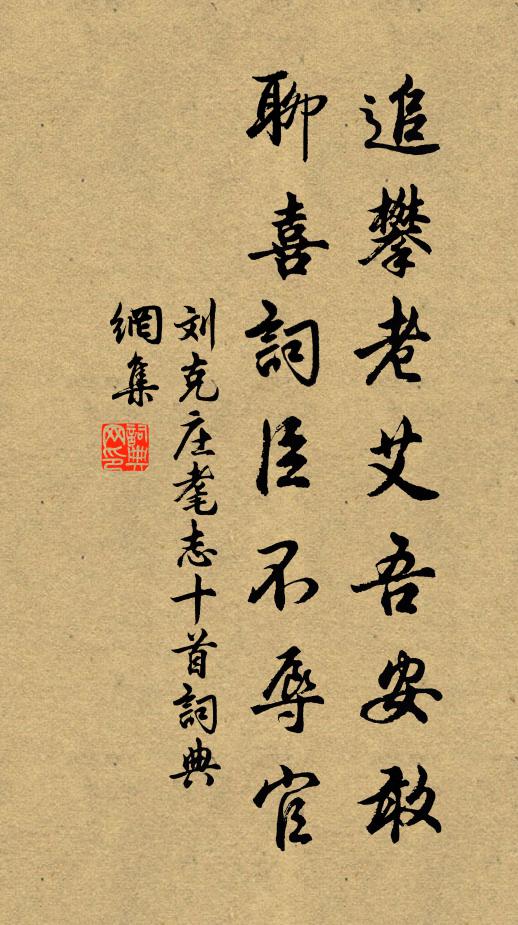 追攀老艾吾安敢
聊喜詞臣不辱官
刘克庄耄志十首詞典
網集
詞典
网印